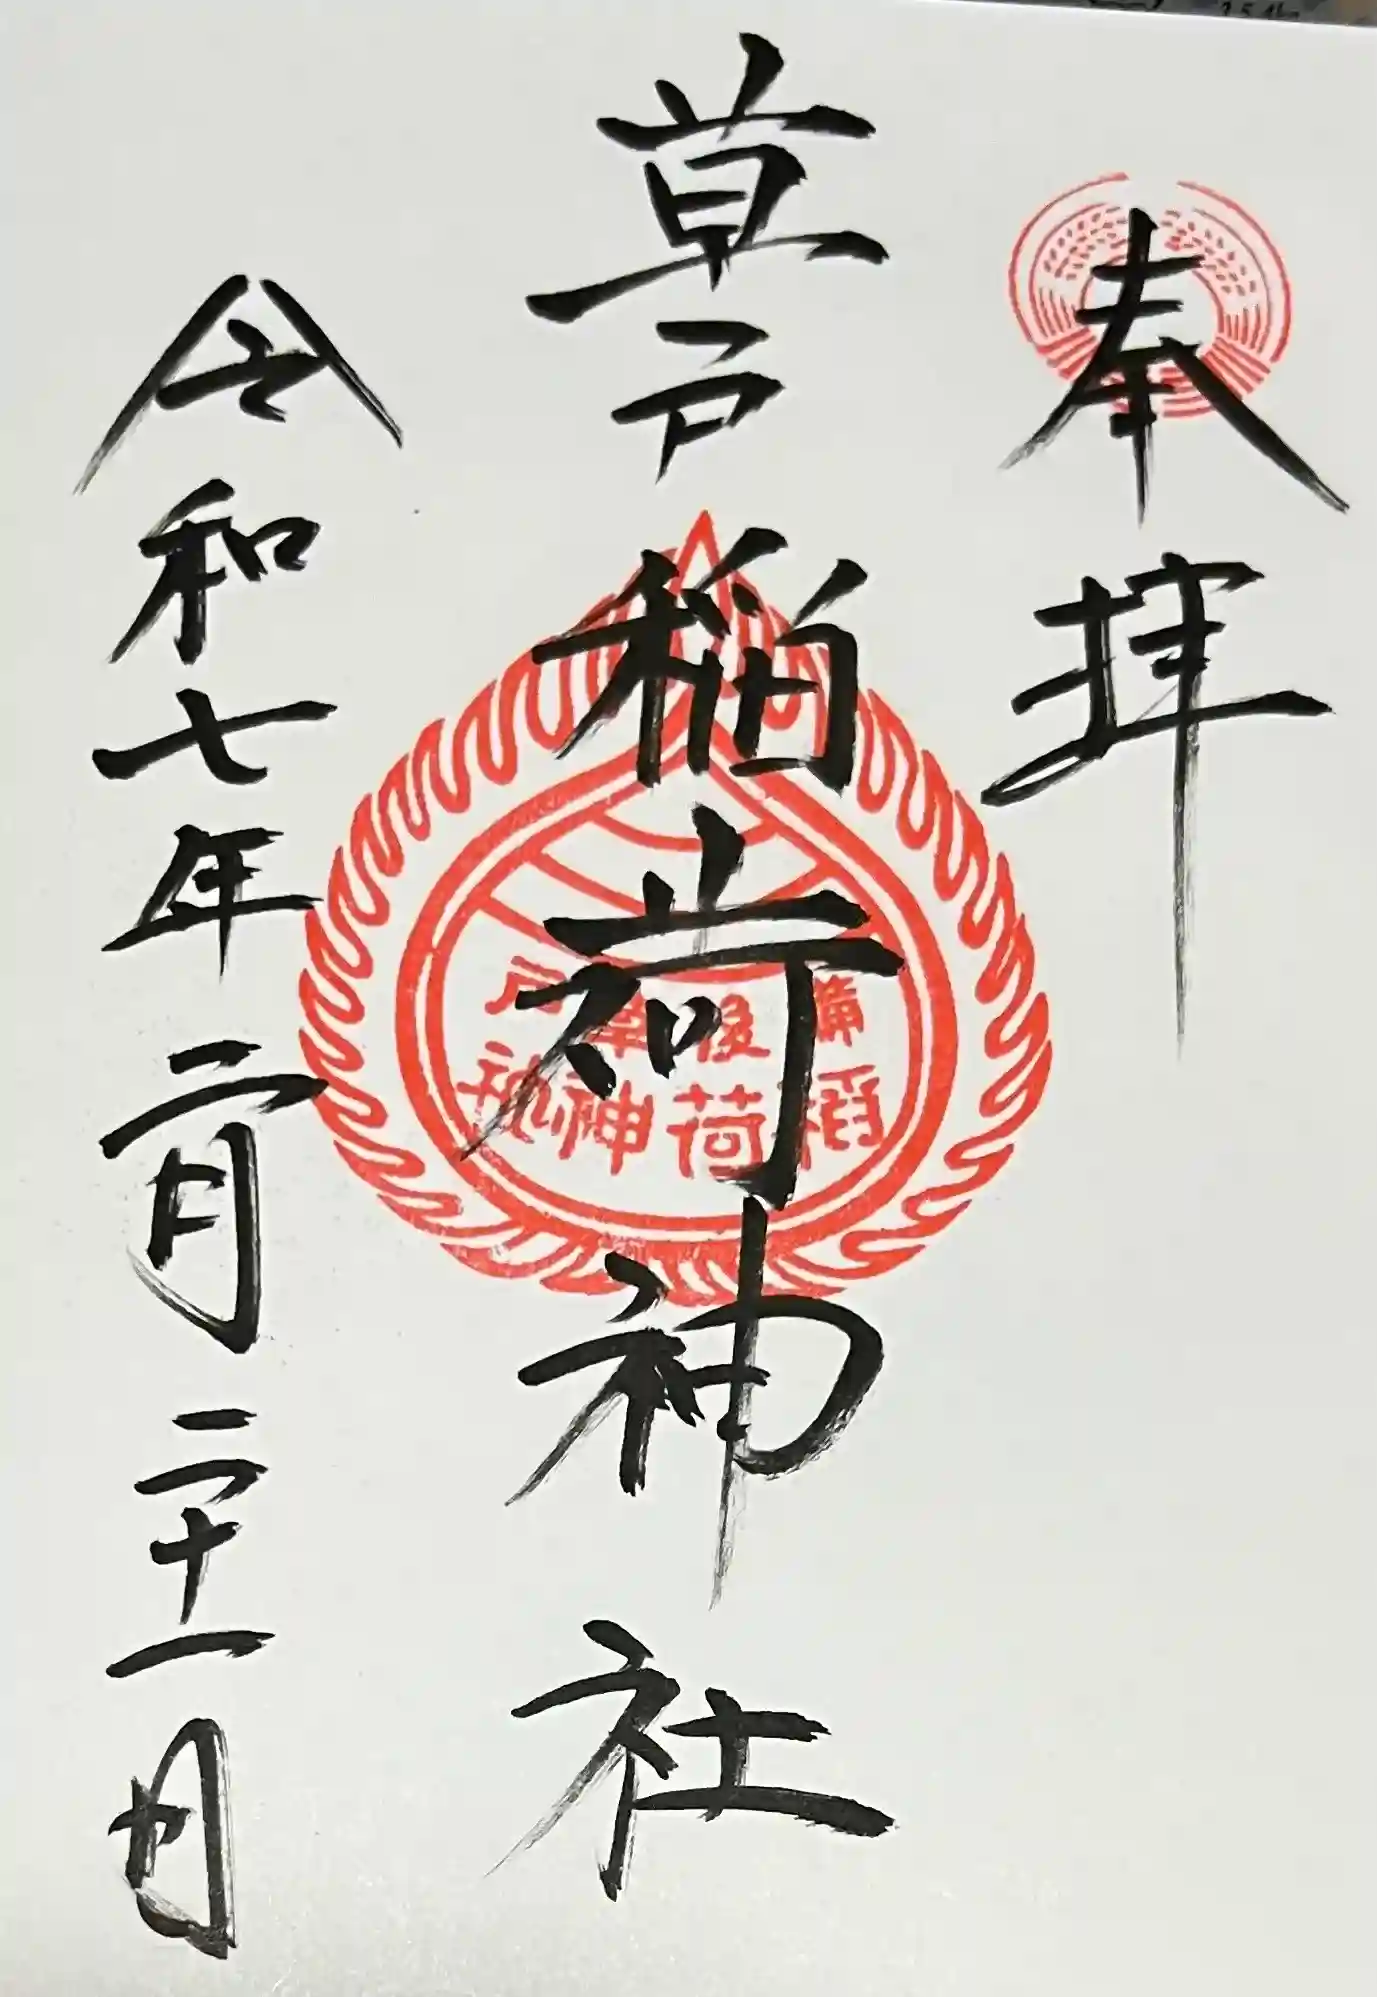 奉拝
草戸稲荷神社
備後草戸
稲荷神社
令和七年二月二十一日